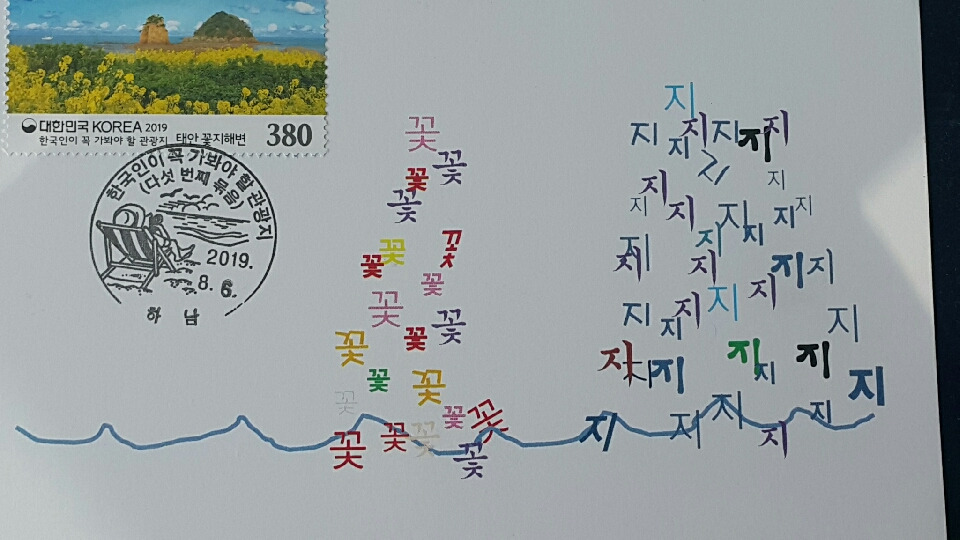 대한민국 KOREA 2019
한국인이 꼭 가봐야 할 관광지 태안 꽃지해변 380
한국인이 꼭 가봐야 할 관광지
(다섯 번째 묶음)
2019.
8. 6.
하남
꽃
꽃
꽃
꽃
꽃 꽃
꽃 꽃
꽃 꽃
꽃 꽃
꽃 꽃
꽃 꽃 꽃
꽃 꽃 꽃
꽃 꽃
지
지 지 지 지 지
지
지 지
지 지 지 지 지
지 지
지 지 지 지
지 지 지
지 지 지
지 지 지
지 지 지
지 지
지 지 지